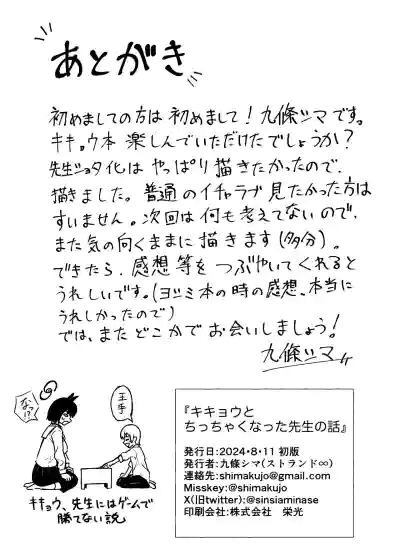 あとがき
初めましての方は初めまして！九條シマです。
キキョウ本楽しんでいただけたでしょうか？
先生ショタ化はやっぱり描きたかったので、
描きました。普通のイチャラブ見たかった方は
すいません。次回は何も考えてないので、
また気の向くままに描きます(多分)。
できたら、感想等をつぶやいてくれると
うれしいです。(ヨミ本の時の感想、本当に
うれしかったので)
では、またどこかでお会いしましょう！
九條シマ
なっ!?
王手
キキョウ、先生にはゲームで
勝てない説
『キキョウと
ちっちゃくなった先生の話』
発行日:2024・8・11 初版
発行者:九條シマ(ストランド∞)
連絡先:shimakujo@gmail.com
Misskey:@shimakujo
X(旧twitter):@sinsiaminase
印刷会社:株式会社 栄光